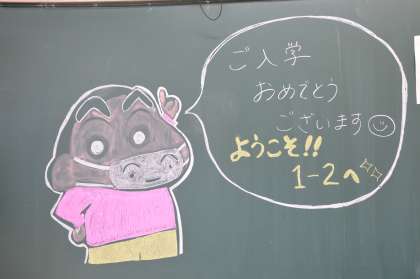 ご入学
おめでとう
ございます
ようこそ!!
1-2へ